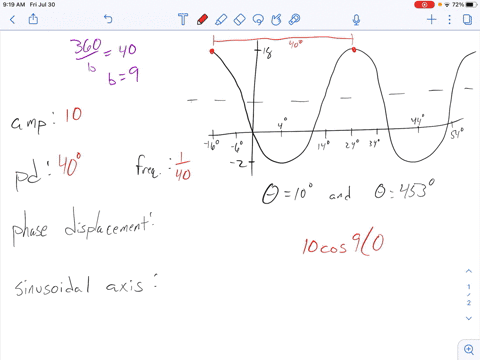 9:19 AM Fri Jul 30
72%
360/b = 40
b = 9
amp: 10
pd: 40°
freq.: 1/40
phase displacement:
sinusoidal axis:
40°
18
-16° -6° 4° 14° 24° 34° 44° 54°
-2
θ = 10° and θ = 453°
10 cos 9(θ
1
2